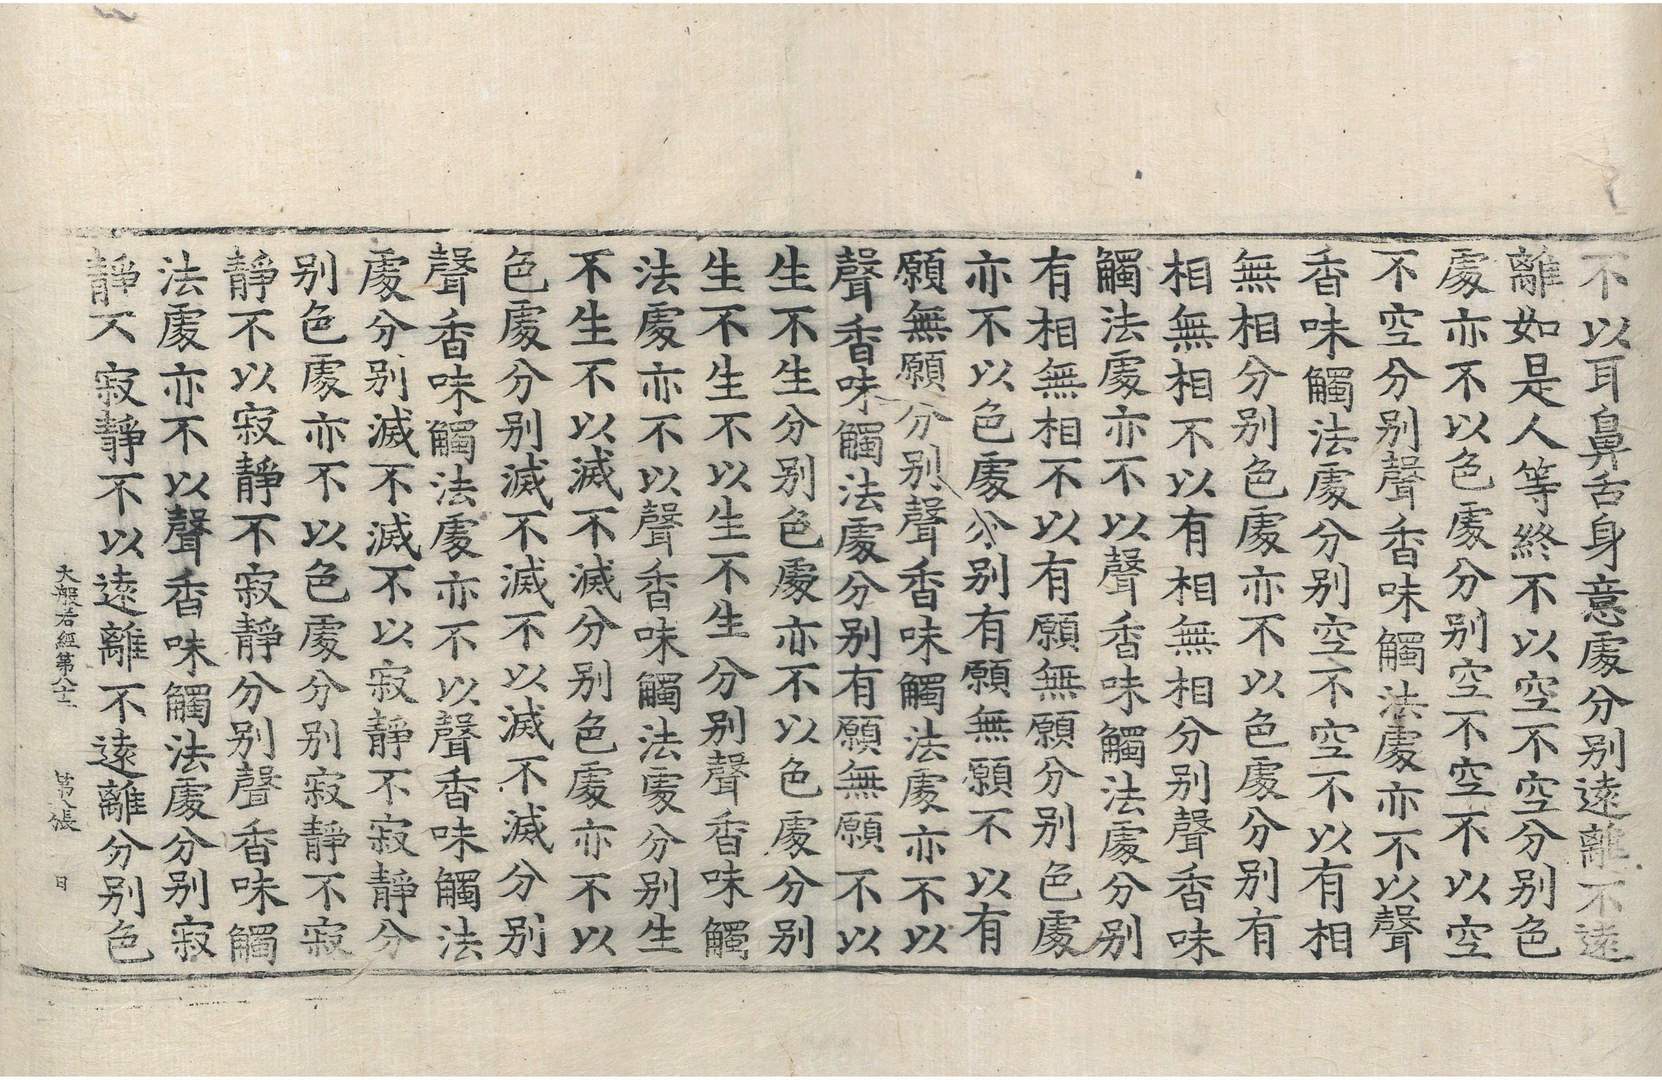 不以耳鼻舌身意處分别遠離不遠
離如是人等終不以空不空分别色
處亦不以色處分别空不空不以空
不空分别聲香味觸法處亦不以聲
香味觸法處分别空不空不以有相
無相分别色處亦不以色處分别有
相無相不以有相無相分别聲香味
觸法處亦不以聲香味觸法處分别
有相無相不以有願無願分别色處
亦不以色處分别有願無願不以有
願無願分别聲香味觸法處亦不以
聲香味觸法處分别有願無願不以
生不生分别色處亦不以色處分别
生不生不以生不生分别聲香味觸
法處亦不以聲香味觸法處分别生
不生不以滅不滅分别色處亦不以
色處分别滅不滅不以滅不滅分别
聲香味觸法處亦不以聲香味觸法
處分别滅不滅不以寂靜不寂靜分
别色處亦不以色處分别寂靜不寂
靜不以寂靜不寂靜分别聲香味觸
法處亦不以聲香味觸法處分别寂
靜不寂靜不以遠離不遠離分别色
大般若經第八十二 第八張 日